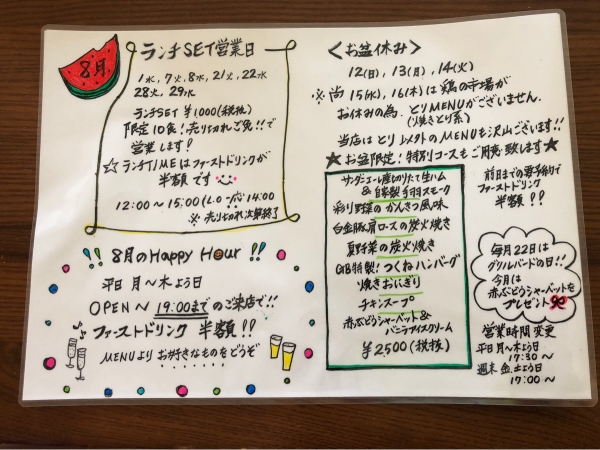 8月
ランチSET営業日
1水, 7火, 8水, 21火, 22水
28火, 29水
ランチSET ¥1000(税抜)
限定10食!売り切れご免!!で
営業します!
☆ランチTIMEはファーストドリンクが
半額です
12:00〜15:00(L.O 14:00
※売り切れ次第終了
!! 8月のHappy Hour !!
平日 月〜木よう日
OPEN〜 19:00までのご来店で!!
ファーストドリンク 半額!!
MENUより お好きなものをどうぞ
<お盆休み>
12(日), 13(月), 14(火)
※尚 15(水), 16(木)は鶏の市場が
お休みの為、とりMENUがございません。
(焼きとり系)
当店はとり以外のMENUも沢山ございます!!
★お盆限定!特別コースもご用意致します★
サンダニエーレ産切りたて生ハム
&自家製手羽スモーク
彩り野菜のかんきつ風味
白金豚肩ロースの炭火焼き
夏野菜の炭火焼き
GB特製!つくねハンバーグ
焼きおにぎり
チキンスープ
赤ぶどうシャーベット&
バニラアイスクリーム
¥2500(税抜)
前日までの要予約で
ファーストドリンク
半額!!
毎月22日は
グリルバードの日!!
今月は
赤ぶどうシャーベットを
プレゼント
営業時間変更
平日 月〜木よう日
17:30〜
週末 金,土よう日
17:00〜